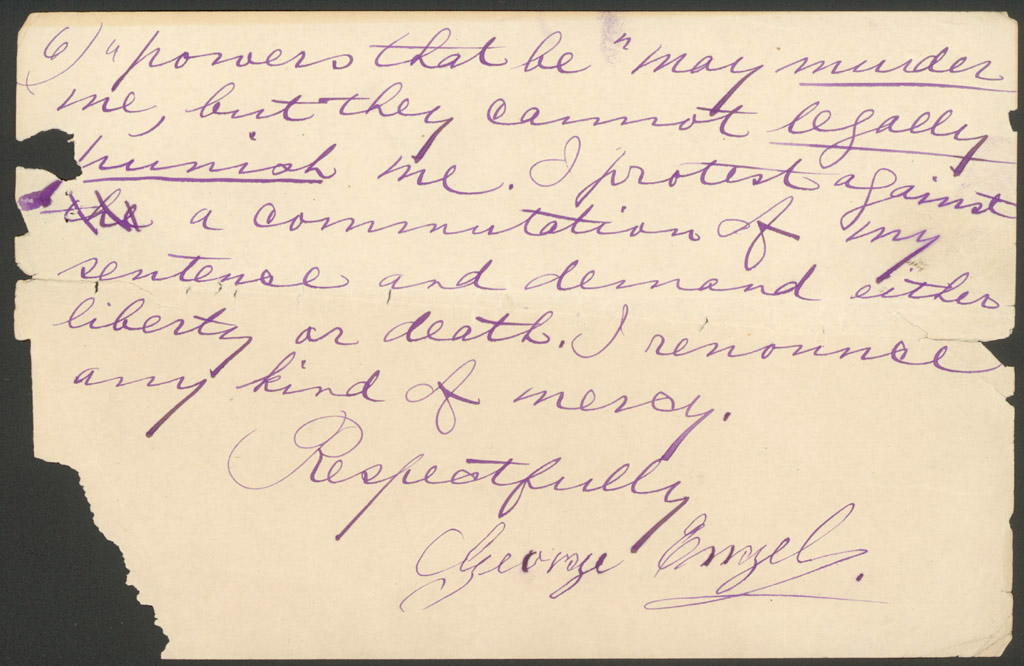 6) "powers that be" may murder
me, but they cannot legally
punish me. I protest against
the a commutation of my
sentence and demand either
liberty or death. I renounce
any kind of mercy.
Respectfully
George Engel.